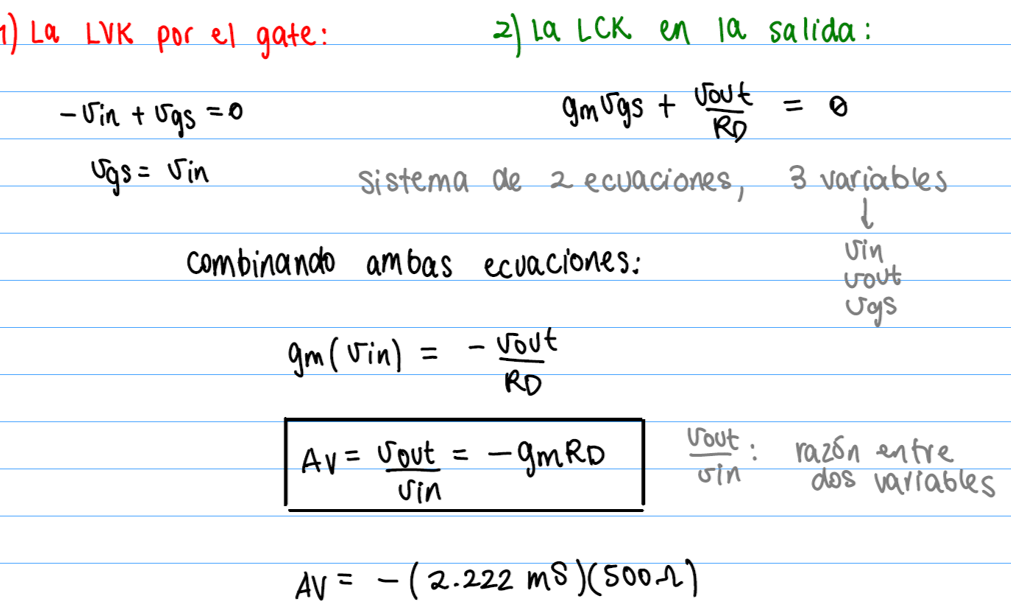 1) La LVK por el gate:
2) La LCK en la salida:
-vin + vgs = 0
gmvgs + vout/RD = 0
vgs = vin
sistema de 2 ecuaciones, 3 variables
↓
vin
vout
vgs
combinando ambas ecuaciones:
gm(vin) = - vout/RD
Av = vout/vin = -gmRD
vout/vin : razón entre
dos variables
AV = -(2.222 mS)(500Ω)